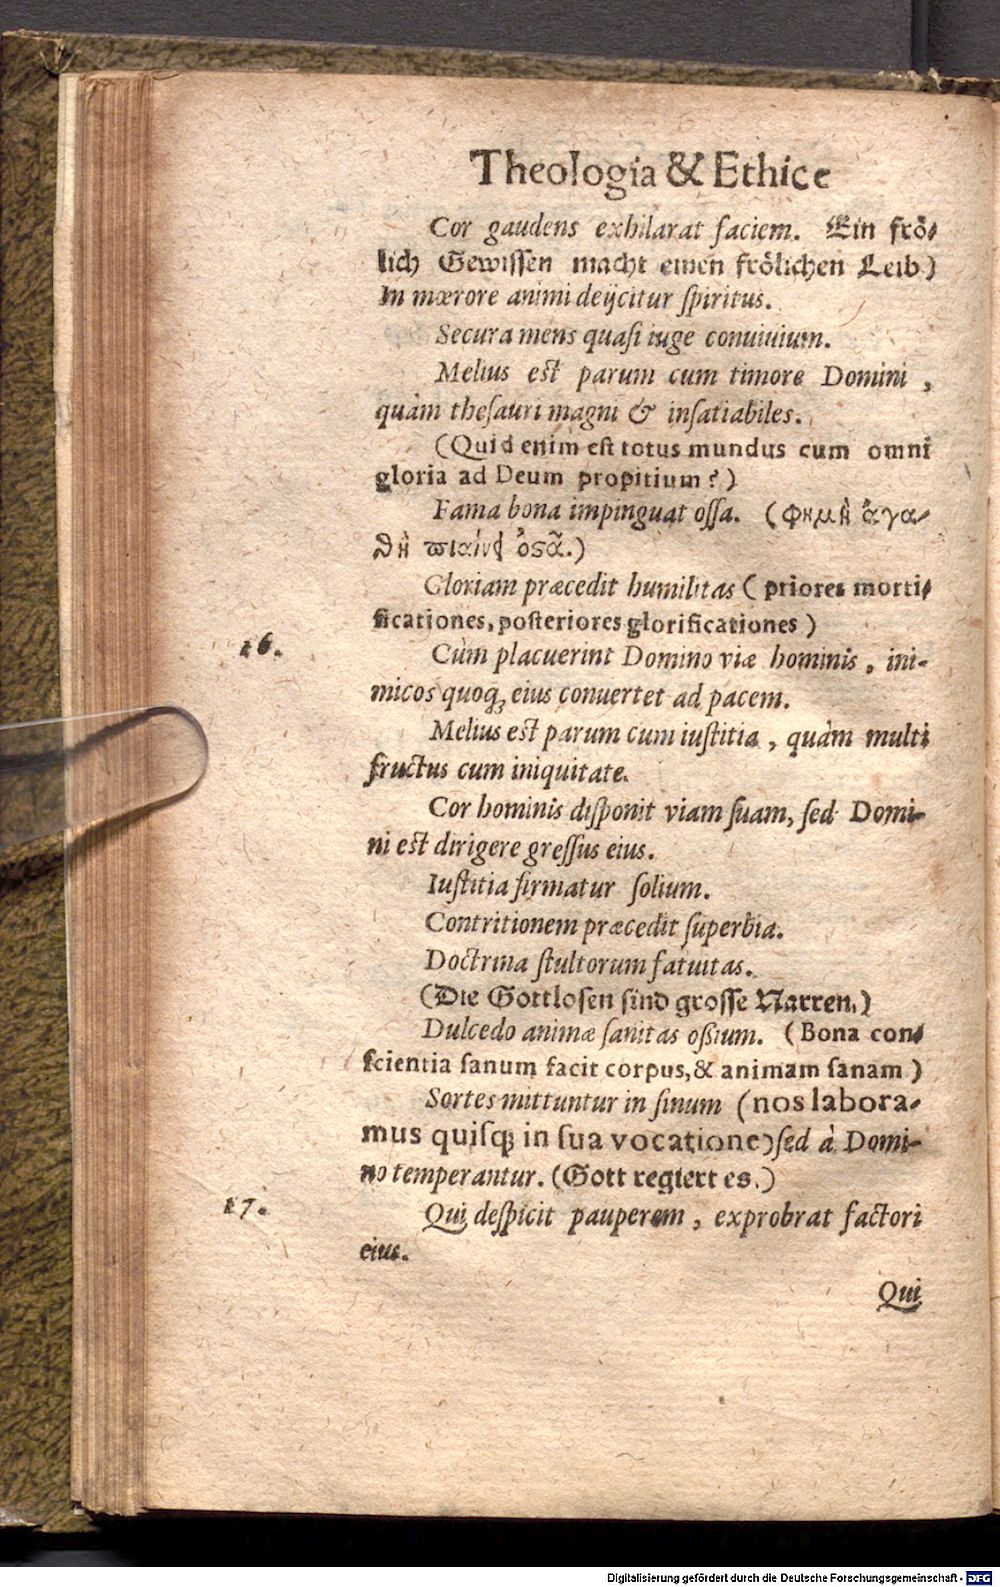 Theologia & Ethice
Cor gaudens exhilarat faciem. Ein frö⸗
lich Gewissen macht einen frölichen Leib)
In mœrore animi deijcitur ſpiritus.
Secura mens quaſi iuge conuiuium.
Melius eſt parum cum timore Domini ,
quàm theſauri magni & inſatiabiles.
(Quid enim eſt totus mundus cum omni
gloria ad Deum propitium?)
Fama bona impinguat oſſa. (φημὴ ἀγα-
θὴ πιαίνει ὀστᾶ.)
Gloriam præcedit humilitas (priores morti⸗
ficationes, poſteriores glorificationes)
16.
Cùm placuerint Domino viæ hominis, ini-
micos quoq; eius conuertet ad pacem.
Melius eſt parum cum iuſtitia, quàm multi
fructus cum iniquitate.
Cor hominis diſponit viam ſuam, ſed Domi-
ni eſt dirigere greſſus eius.
Iuſtitia firmatur ſolium.
Contritionem præcedit ſuperbia.
Doctrina ſtultorum fatuitas.
(Die Gottlosen sind grosse Narren.)
Dulcedo animæ ſanitas oßium. (Bona con⸗
ſcientia ſanum facit corpus, & animam ſanam)
Sortes mittuntur in ſinum (nos labora-
mus quiſq; in ſua vocatione) ſed à Domi-
no temperantur. (Gott regiert es.)
17.
Qui deſpicit pauperem, exprobrat factori
eius.
Qui
Digitalisierung gefördert durch die Deutsche Forschungsgemeinschaft - DFG